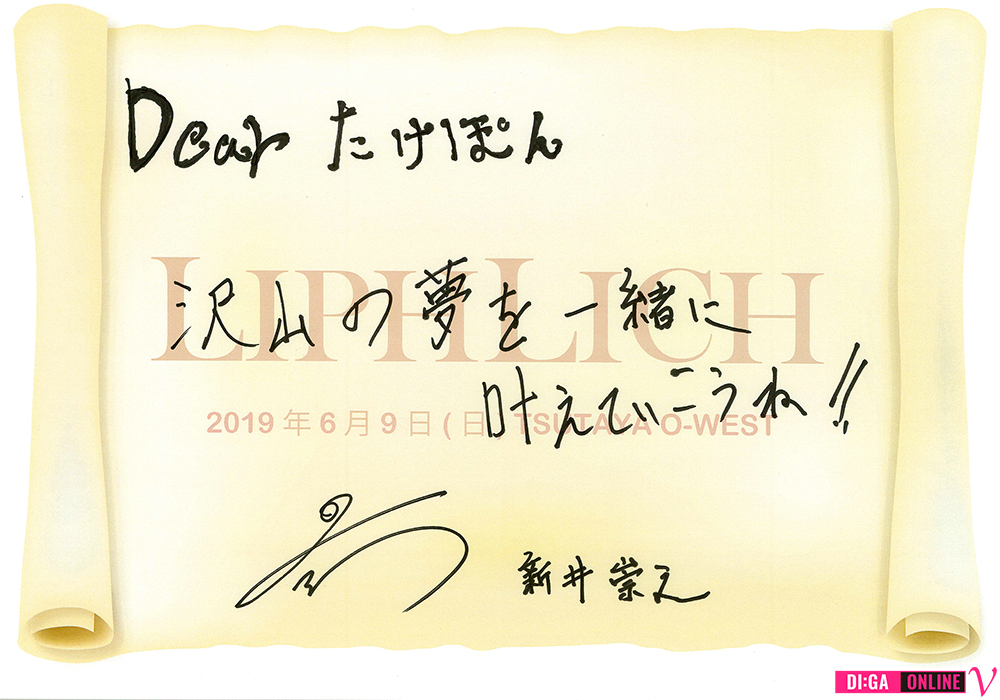 Dear たけぽん
LIPHLICH
沢山の夢を一緒に
叶えていこうね!!
2019年6月9日(日) TSUTAYA O-WEST
新井崇之
DI:GA ONLINE V